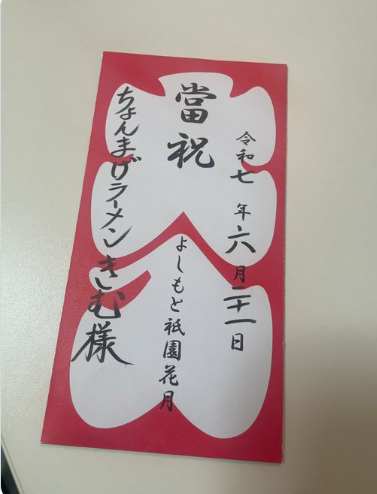 令和七年六月二十一日
當祝
よしもと祇園花月
ちょんまげラーメンきむ様